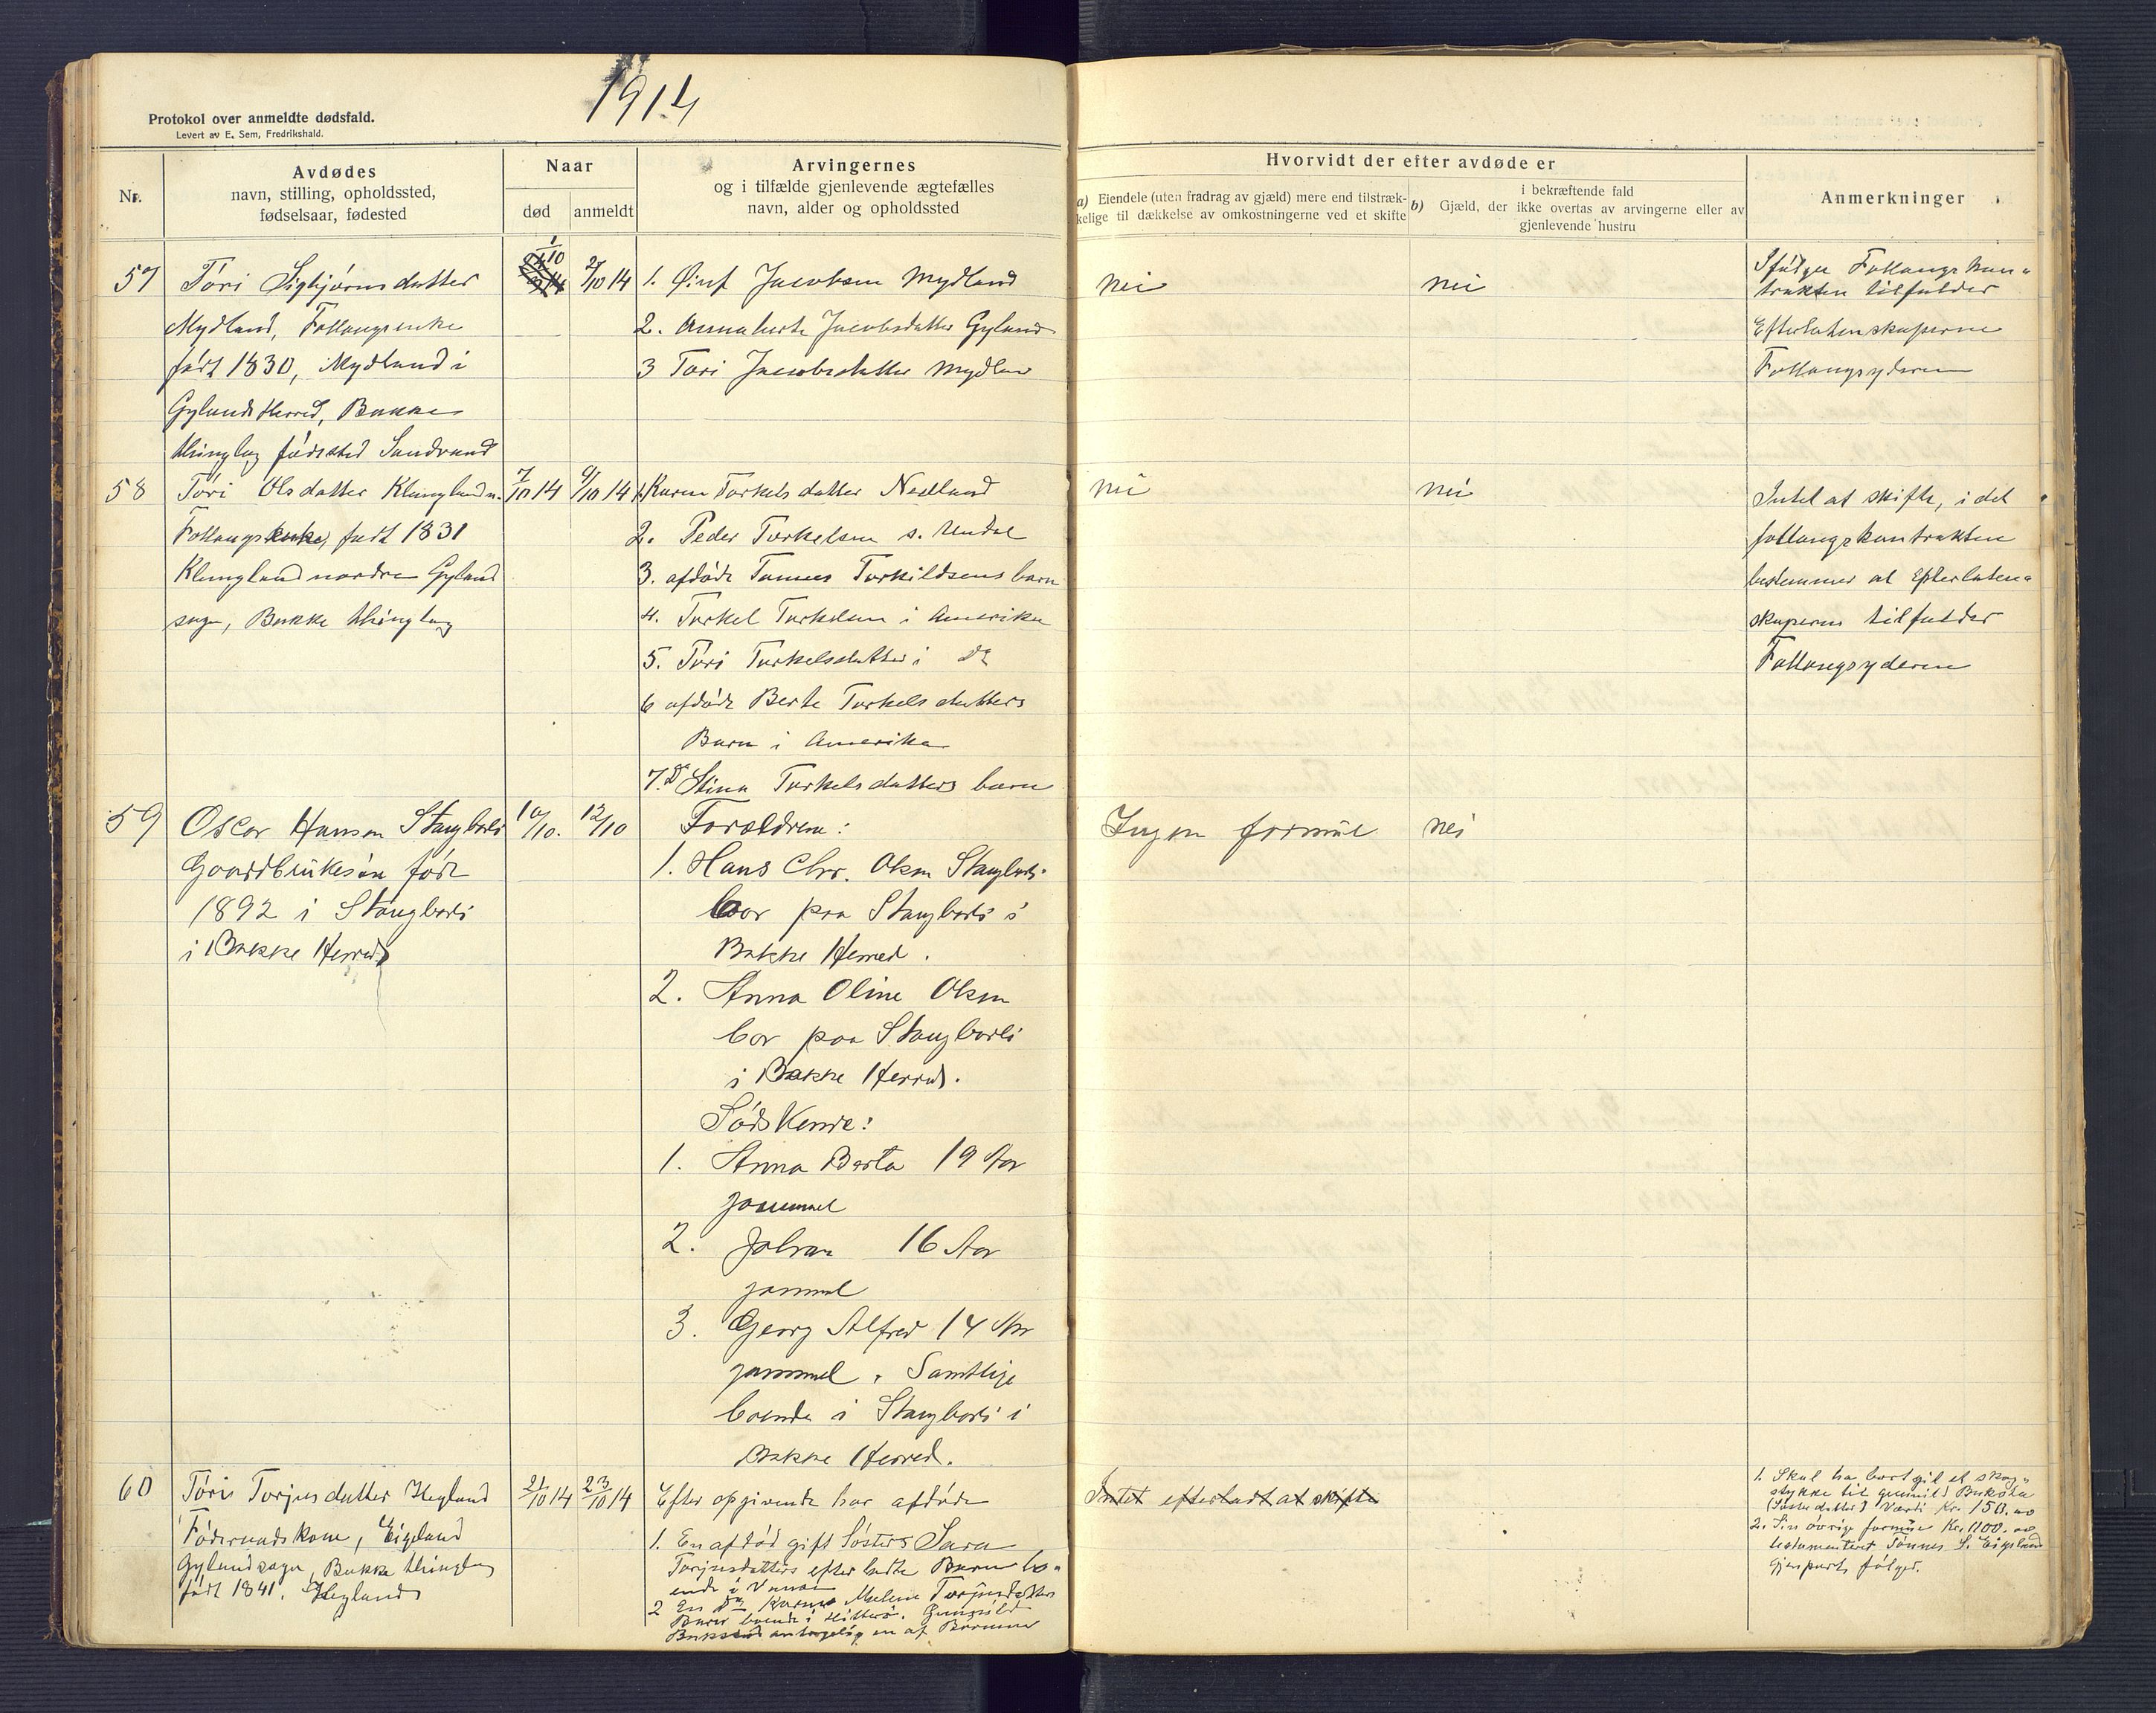 1914
Protokol over anmeldte dødsfald.
Levert av E. Sem, Fredrikshald.
Nr.
Avdødes
navn, stilling, opholdssted,
fødselsaar, fødested
Naar
død
anmeldt
Arvingernes
og i tilfælde gjenlevende ægtefælles
navn, alder og opholdssted
Hvorvidt der efter avdøde er
a) Eiendele (uten fradrag av gjæld) mere end tilstræk-
kelige til dækkelse av omkostningerne ved et skifte
b)
i bekræftende fald
Gjæld, der ikke overtas av arvingerne eller av
gjenlevende hustru
Anmerkninger
57
Tóri Sigbjørnsdatter
Mydland, Follougsenke
født 1830, Mydland i
Gylands Herred, Bakke
thinglag fødested Sandvand
1/10
2/10 14
1. Jacobsen Mydland
2. Anna Jacobsdatter Gyland
3 Tori Jacobsdatter Mydland
nei
nei
Ifølge Follougskon-
trakten tilfalder
Efterladenskaperne
Follougsyderen
58
Tóri Olsdatter Klungland n.
Follougsenke, født 1831
Klungland nordre Gyland
sogn, Bakke thinglag
7/10 14
9/10 14
1. Karen Torkelsdatter Nedland
2. Peder Torkelsen s. Undal
3. afdøde Tønnes Torkildsens barn
4. Torkel Torkelsen i Amerika
5. Tori Torkelsdatter i do
6 afdøde Berte Torkelsdatters
Barn i Amerika
7. do Stina Torkelsdatters barn
nei
nei
Intet at skifte, i det
follougskontrakten
bestemmer at Efterladen-
skaperne tilfalder
Follougsyderen
59
Oscar Hansen Stangborli
Gaardbrukesøn født
1892 i Stangborli
i Bakke Herred
10/10.
12/10
Forældrene:
1. Hans Chr. Olsen Stangborli
bor paa Stangborli i
Bakke Herred.
2. Anna Oline Olsen
bor paa Stangborli
i Bakke Herred.
Sødskende:
1. Anna Berta 19 Aar
gammel
2. Johan 16 Aar
gammel
3. Georg Alfred 14 Aar
gammel. Samtlige
boende i Stangborli i
Bakke Herred.
Ingen formue
nei
60
Tóri Torjusdatter Hegland
Føderaadskone, Eigeland
Gylandsogn, Bakke thinglag
født 1841. Hegland
21/10 14
23/10 14
Efter opgivende har afdøde
1. En afdød gift Søsters Sara
Torjusdatters efterladte Barn bo-
ende i
2 En do Karen Malene Torjusdatters
Barn boende i Hitterø. Gunnild
antagelig en af Børnene
Intet efterladt at skifte
1. Skal ha bortgit et skog-
stykke til Gunnild
(Søsterdatter) Værdi Kr. 150.00
2. Sin øvrige formue Kr. 1100.00
testamenteret Tønnes S. Eigeland
Gjenpart følger.